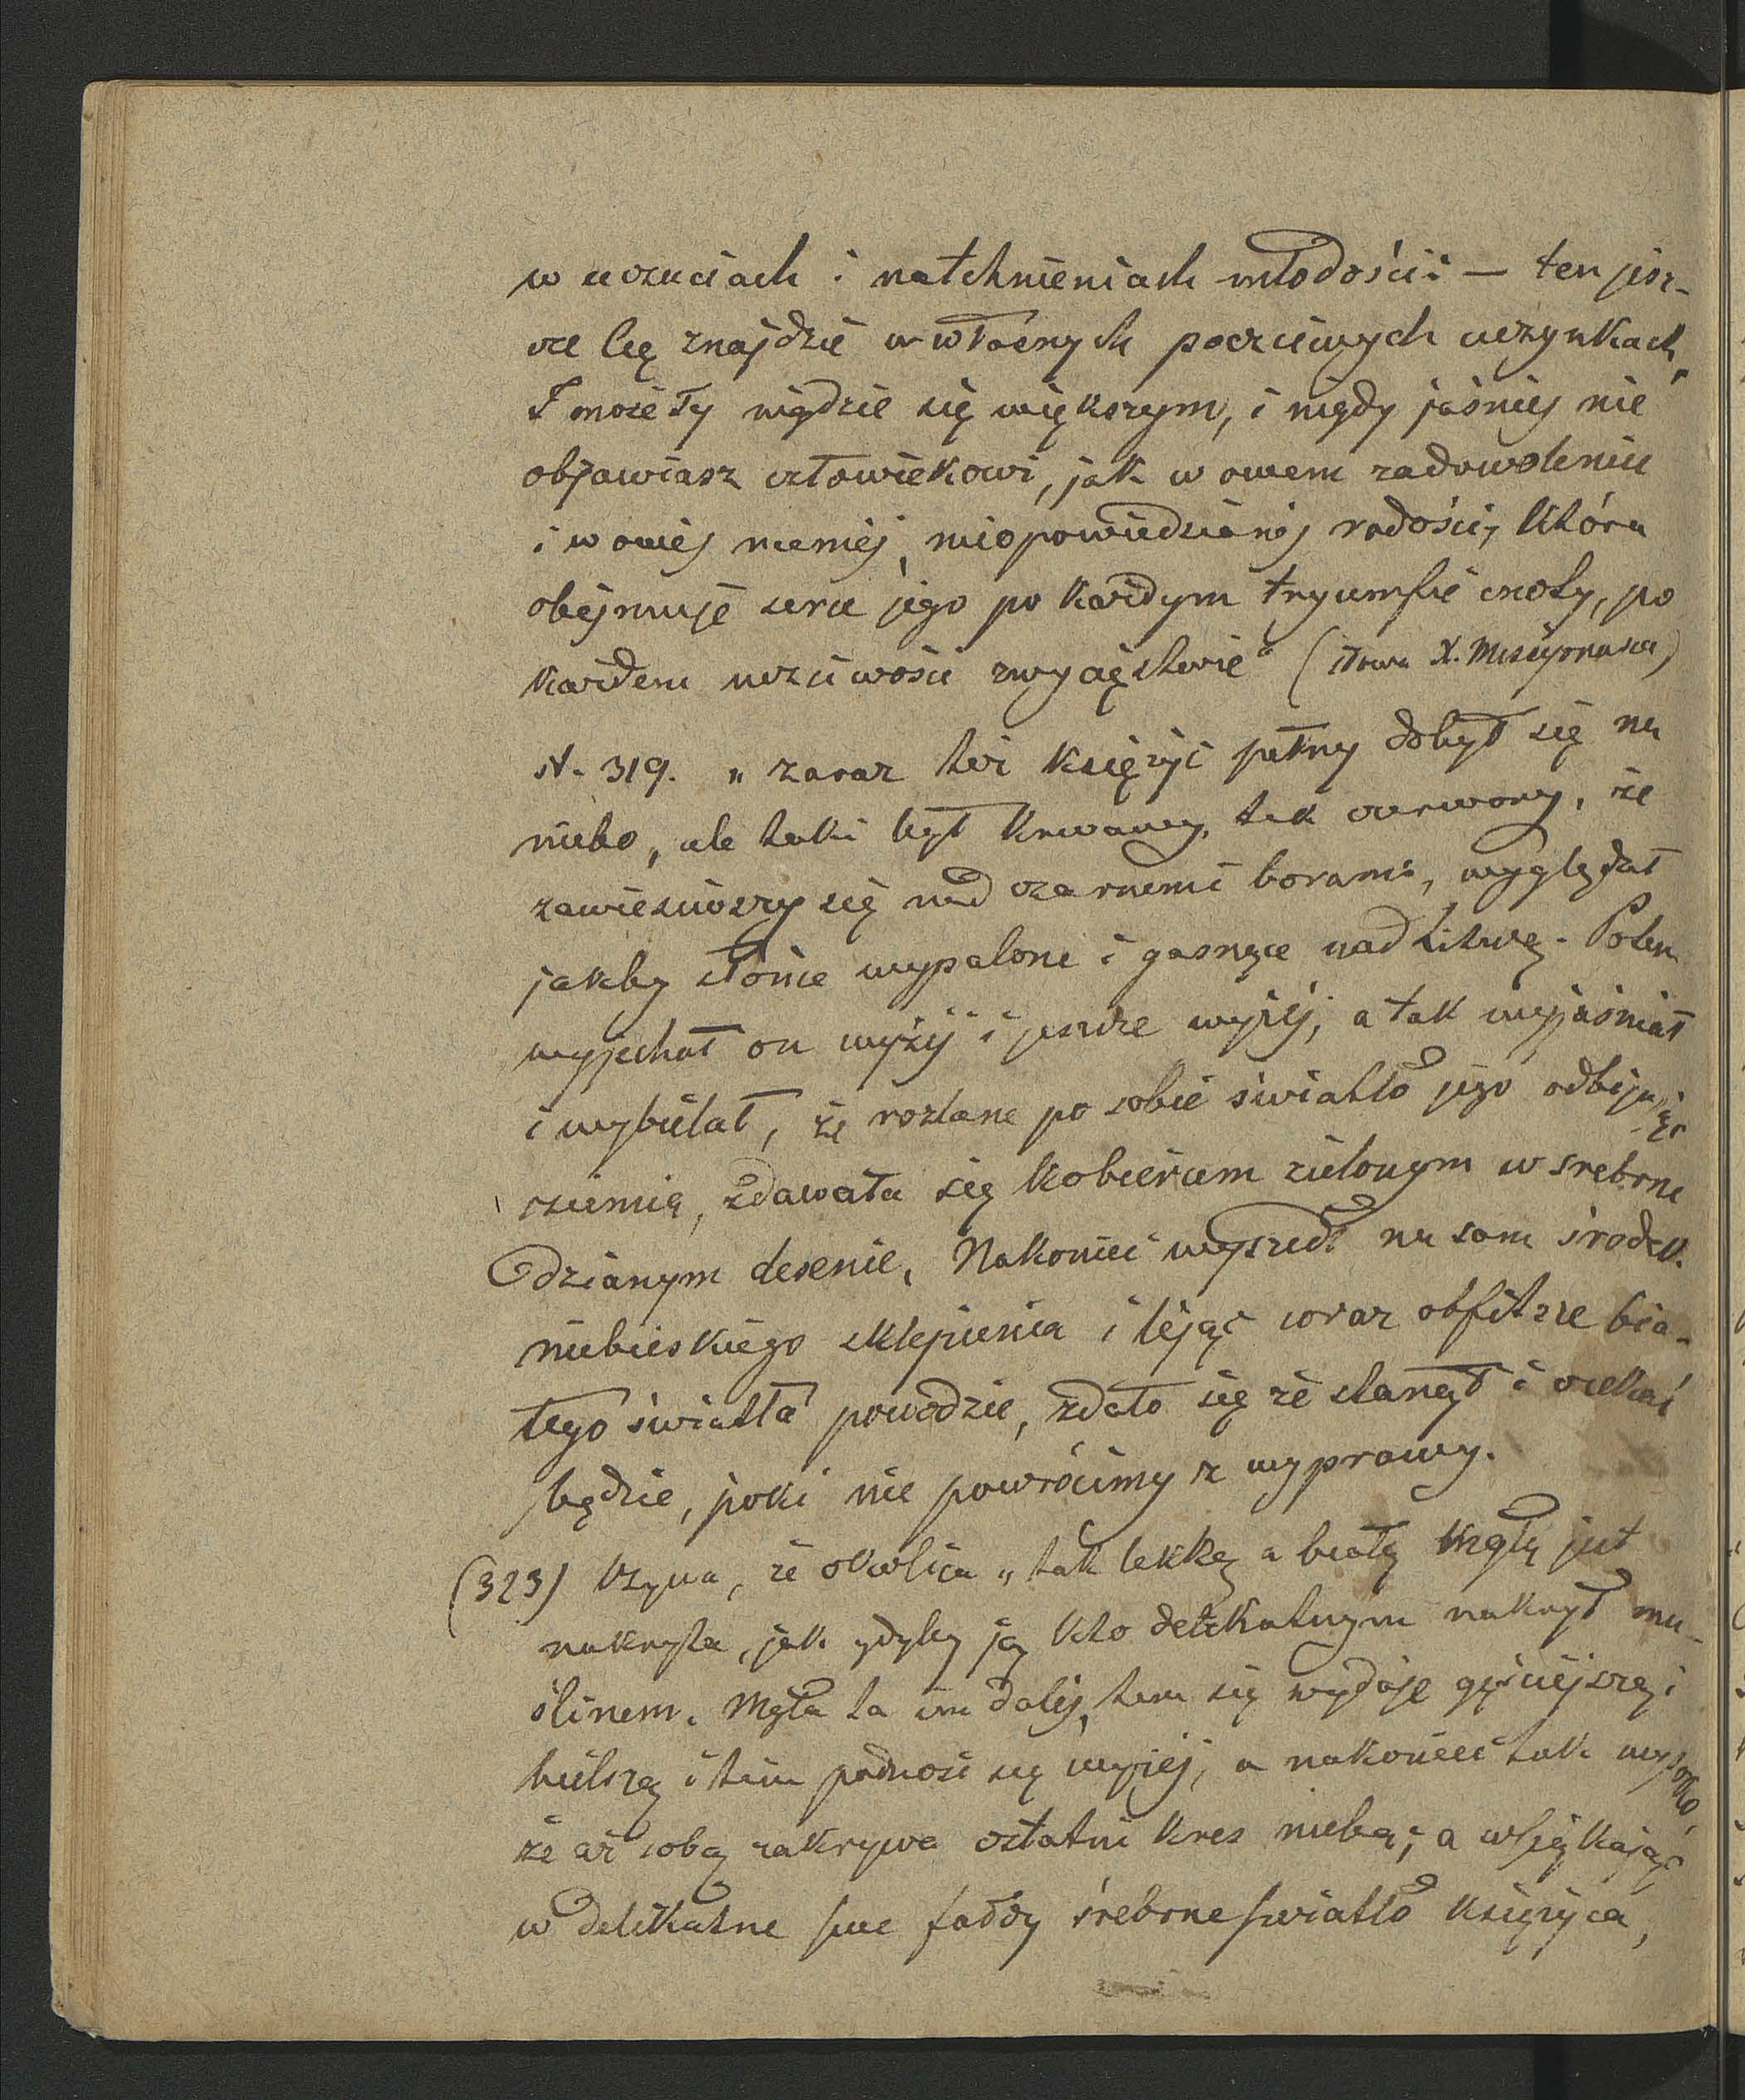 w uczuciach i natchnieniach młodości: — ten jesz-
cze Cię znajdzie w własnych poczciwych uczynkach,
I może Ty nigdzie się większym, i nigdy jaśniej nie
objawiasz człowiekowi, jak w owem zadowoleniu
i w owej niemej, niopowiedzianej radości, która
obejmuje serce jego po każdym tryumfie cnoty, po
każdem uczciwości zwycięstwie" (słowa X.
st. 319. „zaraz też księżyc pełny dobył się na
niebo, ale taki był krwawy, tak czerwony, że
zawiesiwszy się nad czarnemi borami, wyglądał
jakby słońce wypalone i gasnące nad Litwą. Potem
wyjechał on wyżej i jeszcze wyżej, a tak wyjaśniał
i wybielał, że rozlane po sobie światło jego odbijając
ziemia, zdawała się kobiercem zielonym w srebrne
dzianym desenie, Nakoniec wyszedł na sam środek
niebieskiego sklepienia i lejąc coraz obfitsze bia-
łego światła powodzie, zdało się że stanął i czekać
będzie, poki nie powrócimy z wyprawy.
(323) że okolica „tak lekką a białą mgłą jest
nakryta, jak gdyby ją kto delikatnym nakrył mu-
ślinem. Mgła ta im dalej, tem się wydaje gęściejszą i
bielszą i tem podnosi się wyżej, a nakoniec tak wysoko,
że aż sobą zakrywa ostatni kres nieba; a wsiąkając
w delikatne swe fałdy śrebrne światło księżyca,